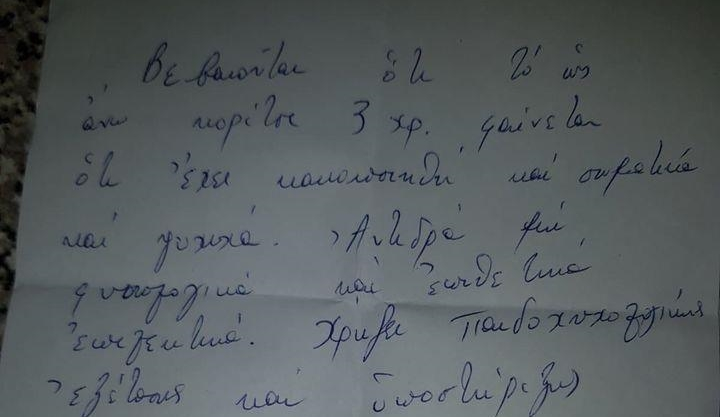 Βεβαιούται ὅτι τό ὡς
ἄνω κορίτσι 3 χρ. φαίνεται
ὅτι ἔχει κακοποιηθῆ καί σωματικά
καί ψυχικά. Ἀντιδρᾶ μή
φυσιολογικά καί ἐπιθετικά
Χρήζει παιδοψυχολογικῆς
ἐξέτασης καί ὑποστήριξης